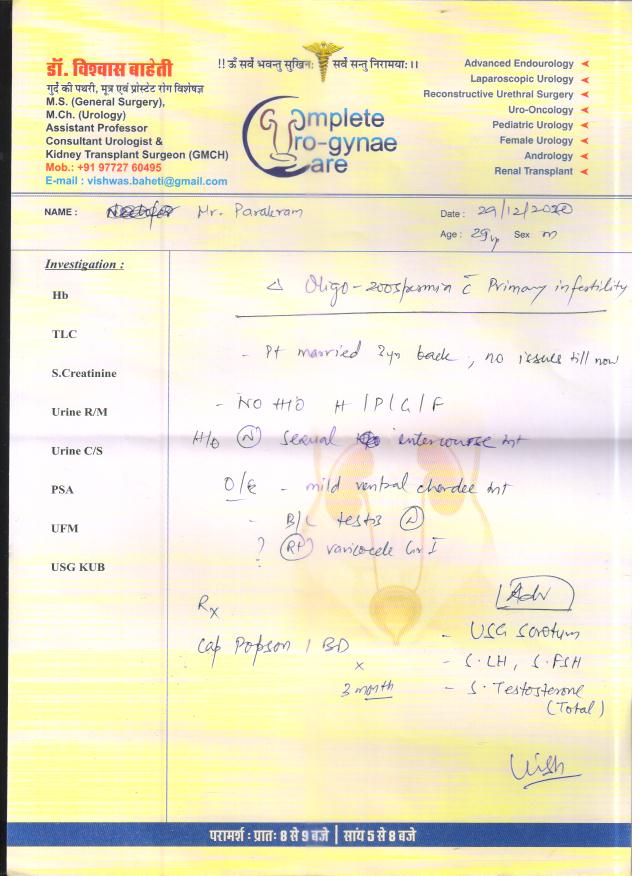 डॉ. विश्वास बाहेती
गुर्दे की पथरी, मूत्र एवं प्रोस्टेट रोग विशेषज्ञ
M.S. (General Surgery),
M.Ch. (Urology)
Assistant Professor
Consultant Urologist &
Kidney Transplant Surgeon (GMCH)
Mob.: +91 97727 60495
E-mail : vishwas.baheti@gmail.com
!! ॐ सर्वे भवन्तु सुखिनः सर्वे सन्तु निरामयाः ।।
Complete
Uro-gynae
Care
Advanced Endourology
Laparoscopic Urology
Reconstructive Urethral Surgery
Uro-Oncology
Pediatric Urology
Female Urology
Andrology
Renal Transplant
NAME : Mr. Parakram
Date : 29/12/2020
Age : 29y Sex m
Investigation :
Hb
TLC
S.Creatinine
Urine R/M
Urine C/S
PSA
UFM
USG KUB
Δ Oligo-zoospermia c̄ Primary infertility
- Pt married 2yr back, no issues till now
- NO H/O H/P/G/F
H/o (N) sexual intercourse
O/E - mild ventral chordee
- B/L testis (N)
? (Rt) varicocele Gr I
Rx
Cap 1 BD
x
3 month
Adv
- USG Scrotum
- S. LH, S. FSH
- S. Testosterone
(Total)
Vish
परामर्श : प्रातः 8 से 9 बजे | सांय 5 से 8 बजे